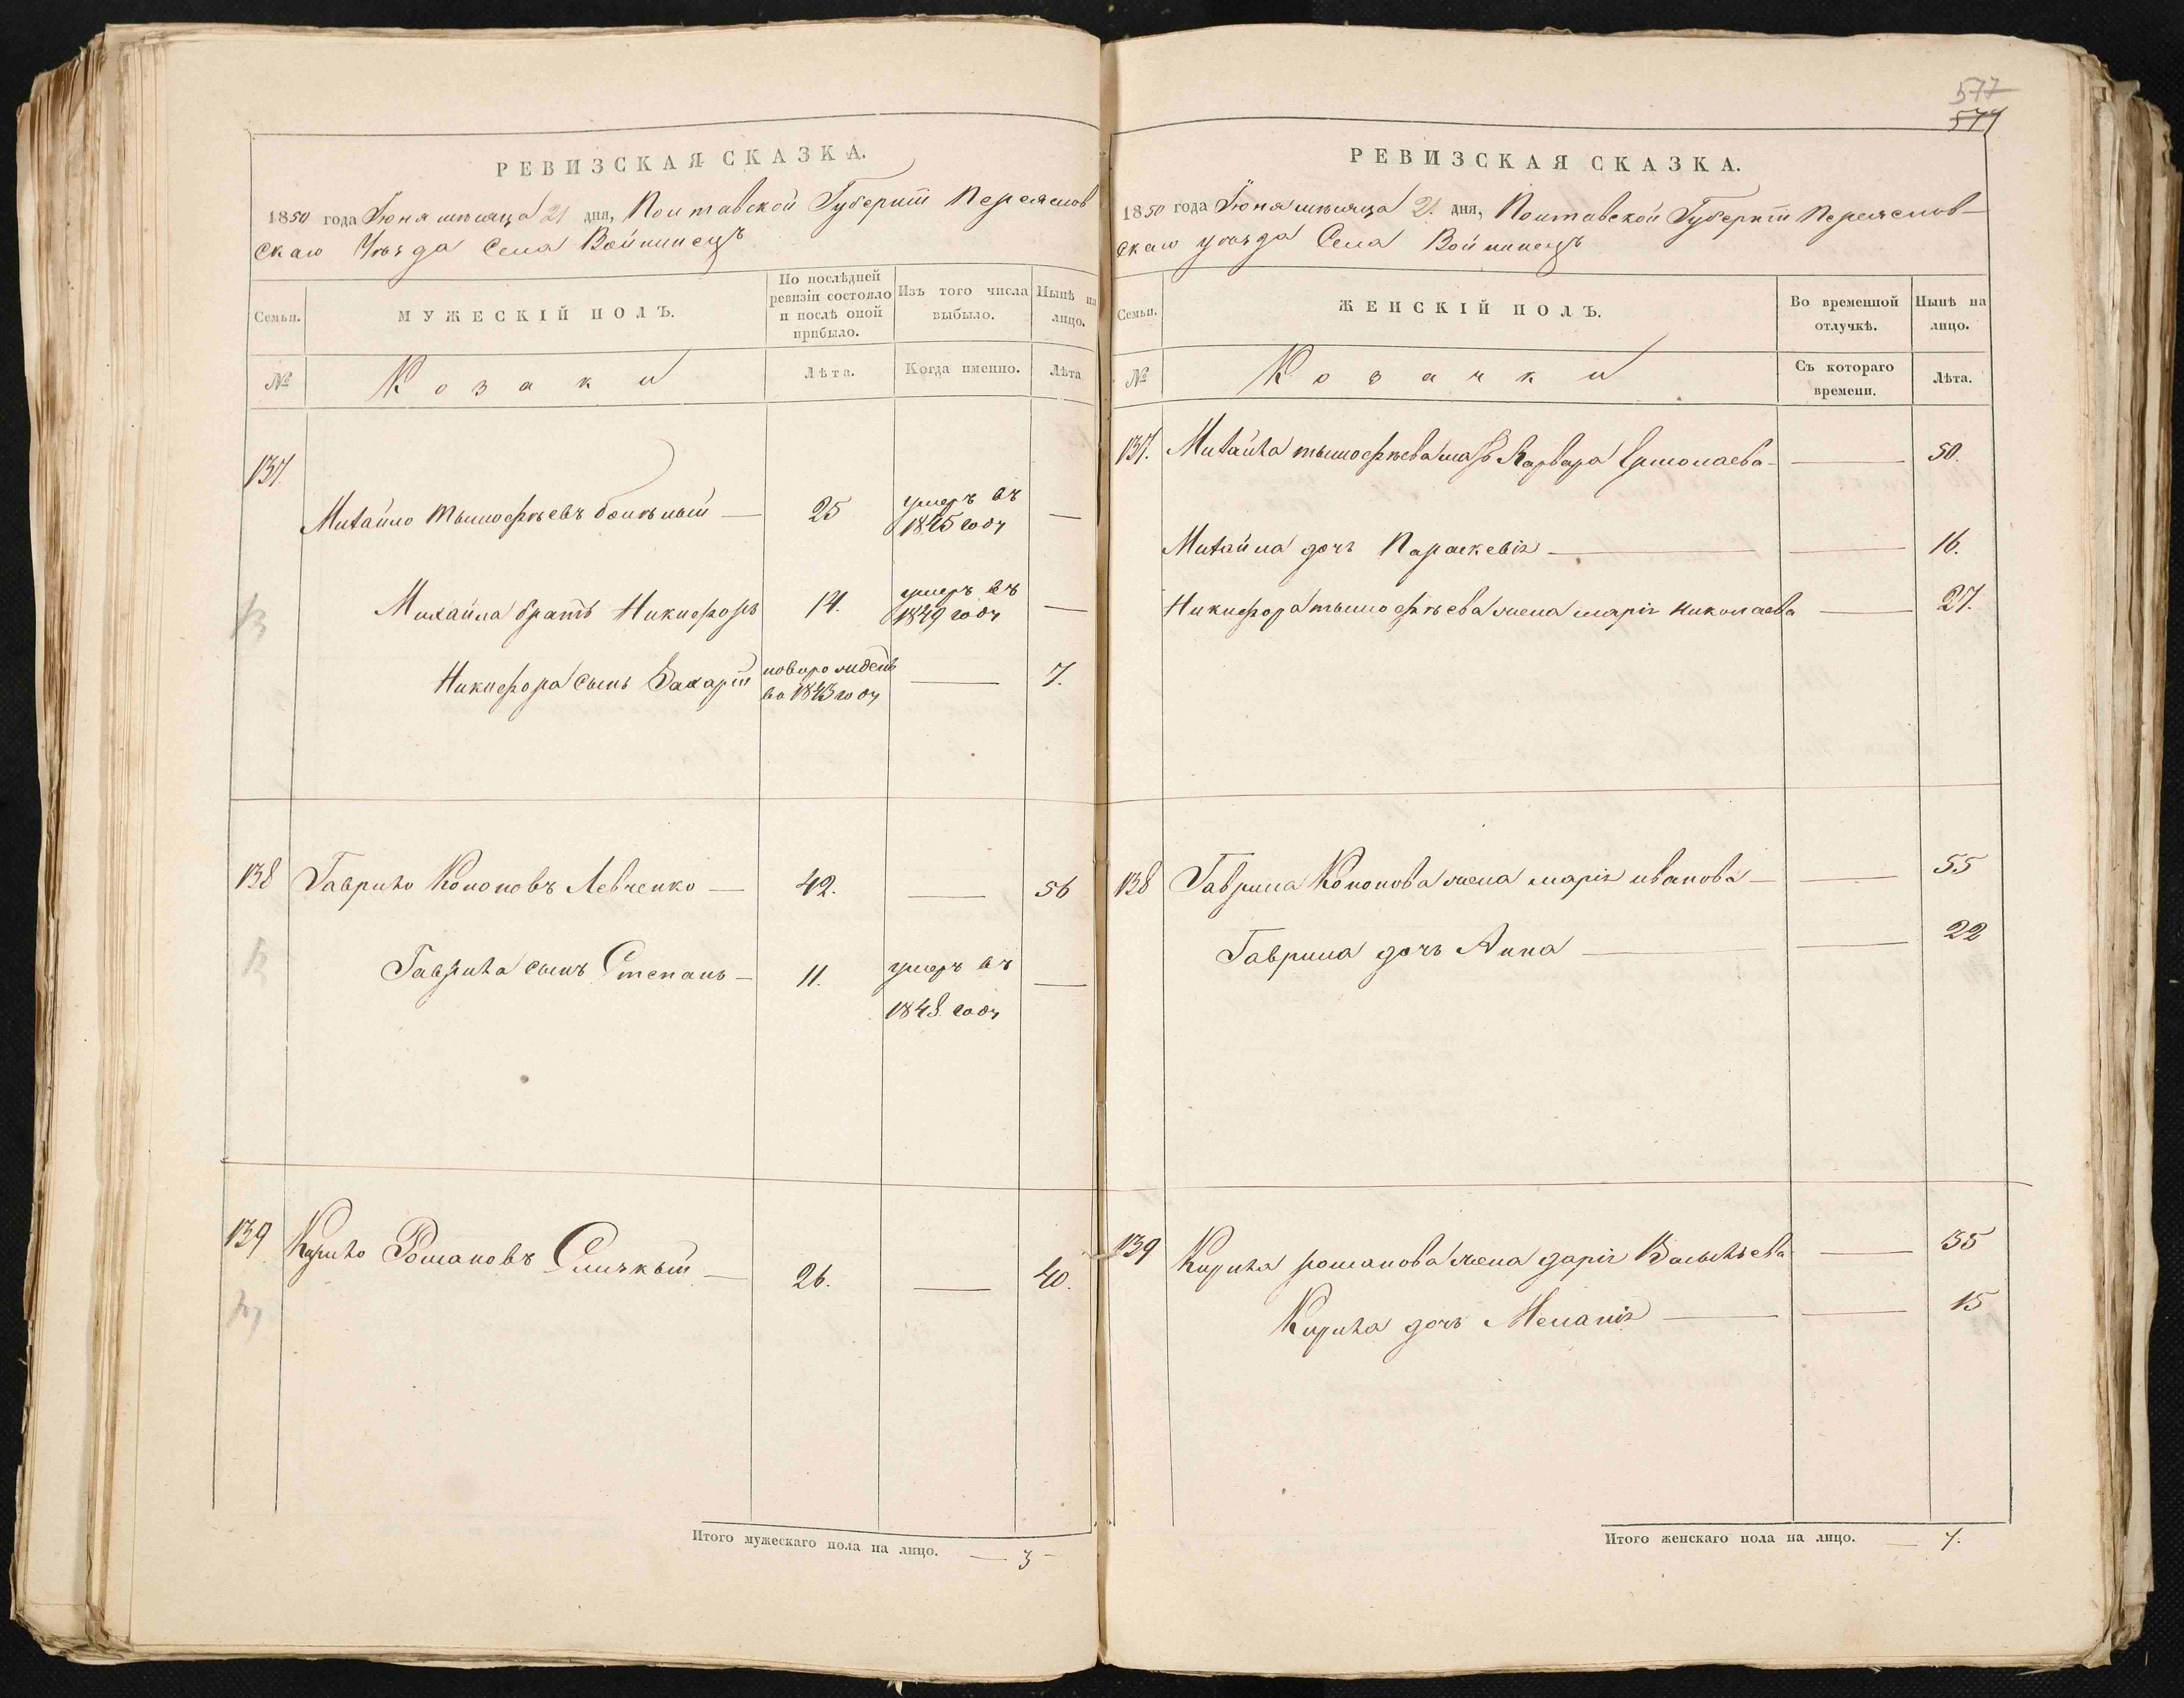 РЕВИЗСКАЯ СКАЗКА.
1850 года Іюня мѣсяца 21 дня, Полтавской Губерніи Переяслов
скаго Уѣзда Села Войтинецъ
Семьи.
МУЖЕСКІЙ ПОЛЪ.
По послѣдней ревизіи состояло и послѣ оной прибыло.
Изъ того числа выбыло.
Нынѣ на лицо.
№
Козаки
Лѣта.
Когда именно.
Лѣта
137.
Михайло Тымофѣевъ — 25 умеръ въ 1845 году —
Михайла братъ Никифоръ 14. умеръ въ 1849 году —
Никифора сынъ Захарій новорожденъ въ 1843 году — 7.
138 Гаврило Кононовъ Левченко — 42. — 56
Гаврила сынъ Степанъ — 11. умеръ въ 1848. году —
139 Кирило Романовъ — 26. — 40.
Итого мужескаго пола на лицо. — 3 —
577
577
РЕВИЗСКАЯ СКАЗКА.
1850 года Іюня мѣсяца 21. дня, Полтавской Губерніи Переяслов-
скаго уѣзда Села Войтинецъ
Семьи.
ЖЕНСКІЙ ПОЛЪ.
Во временной отлучкѣ.
Нынѣ на лицо.
№
Козачки
Съ котораго времени.
Лѣта.
137. Михайла тымофѣева Варвара Ермолаева — — 50.
Михайла дочь Параскевія — — 16.
Никифора тымофѣева жена марія николаева — 27.
138 Гаврила Кононова жена марія иванова — — 55
Гаврила дочь Анна — — 22
139 Кирила романова жена дарія Васильева — 35
Кирила дочь Меланія — — 15
Итого женскаго пола на лицо. — 7.